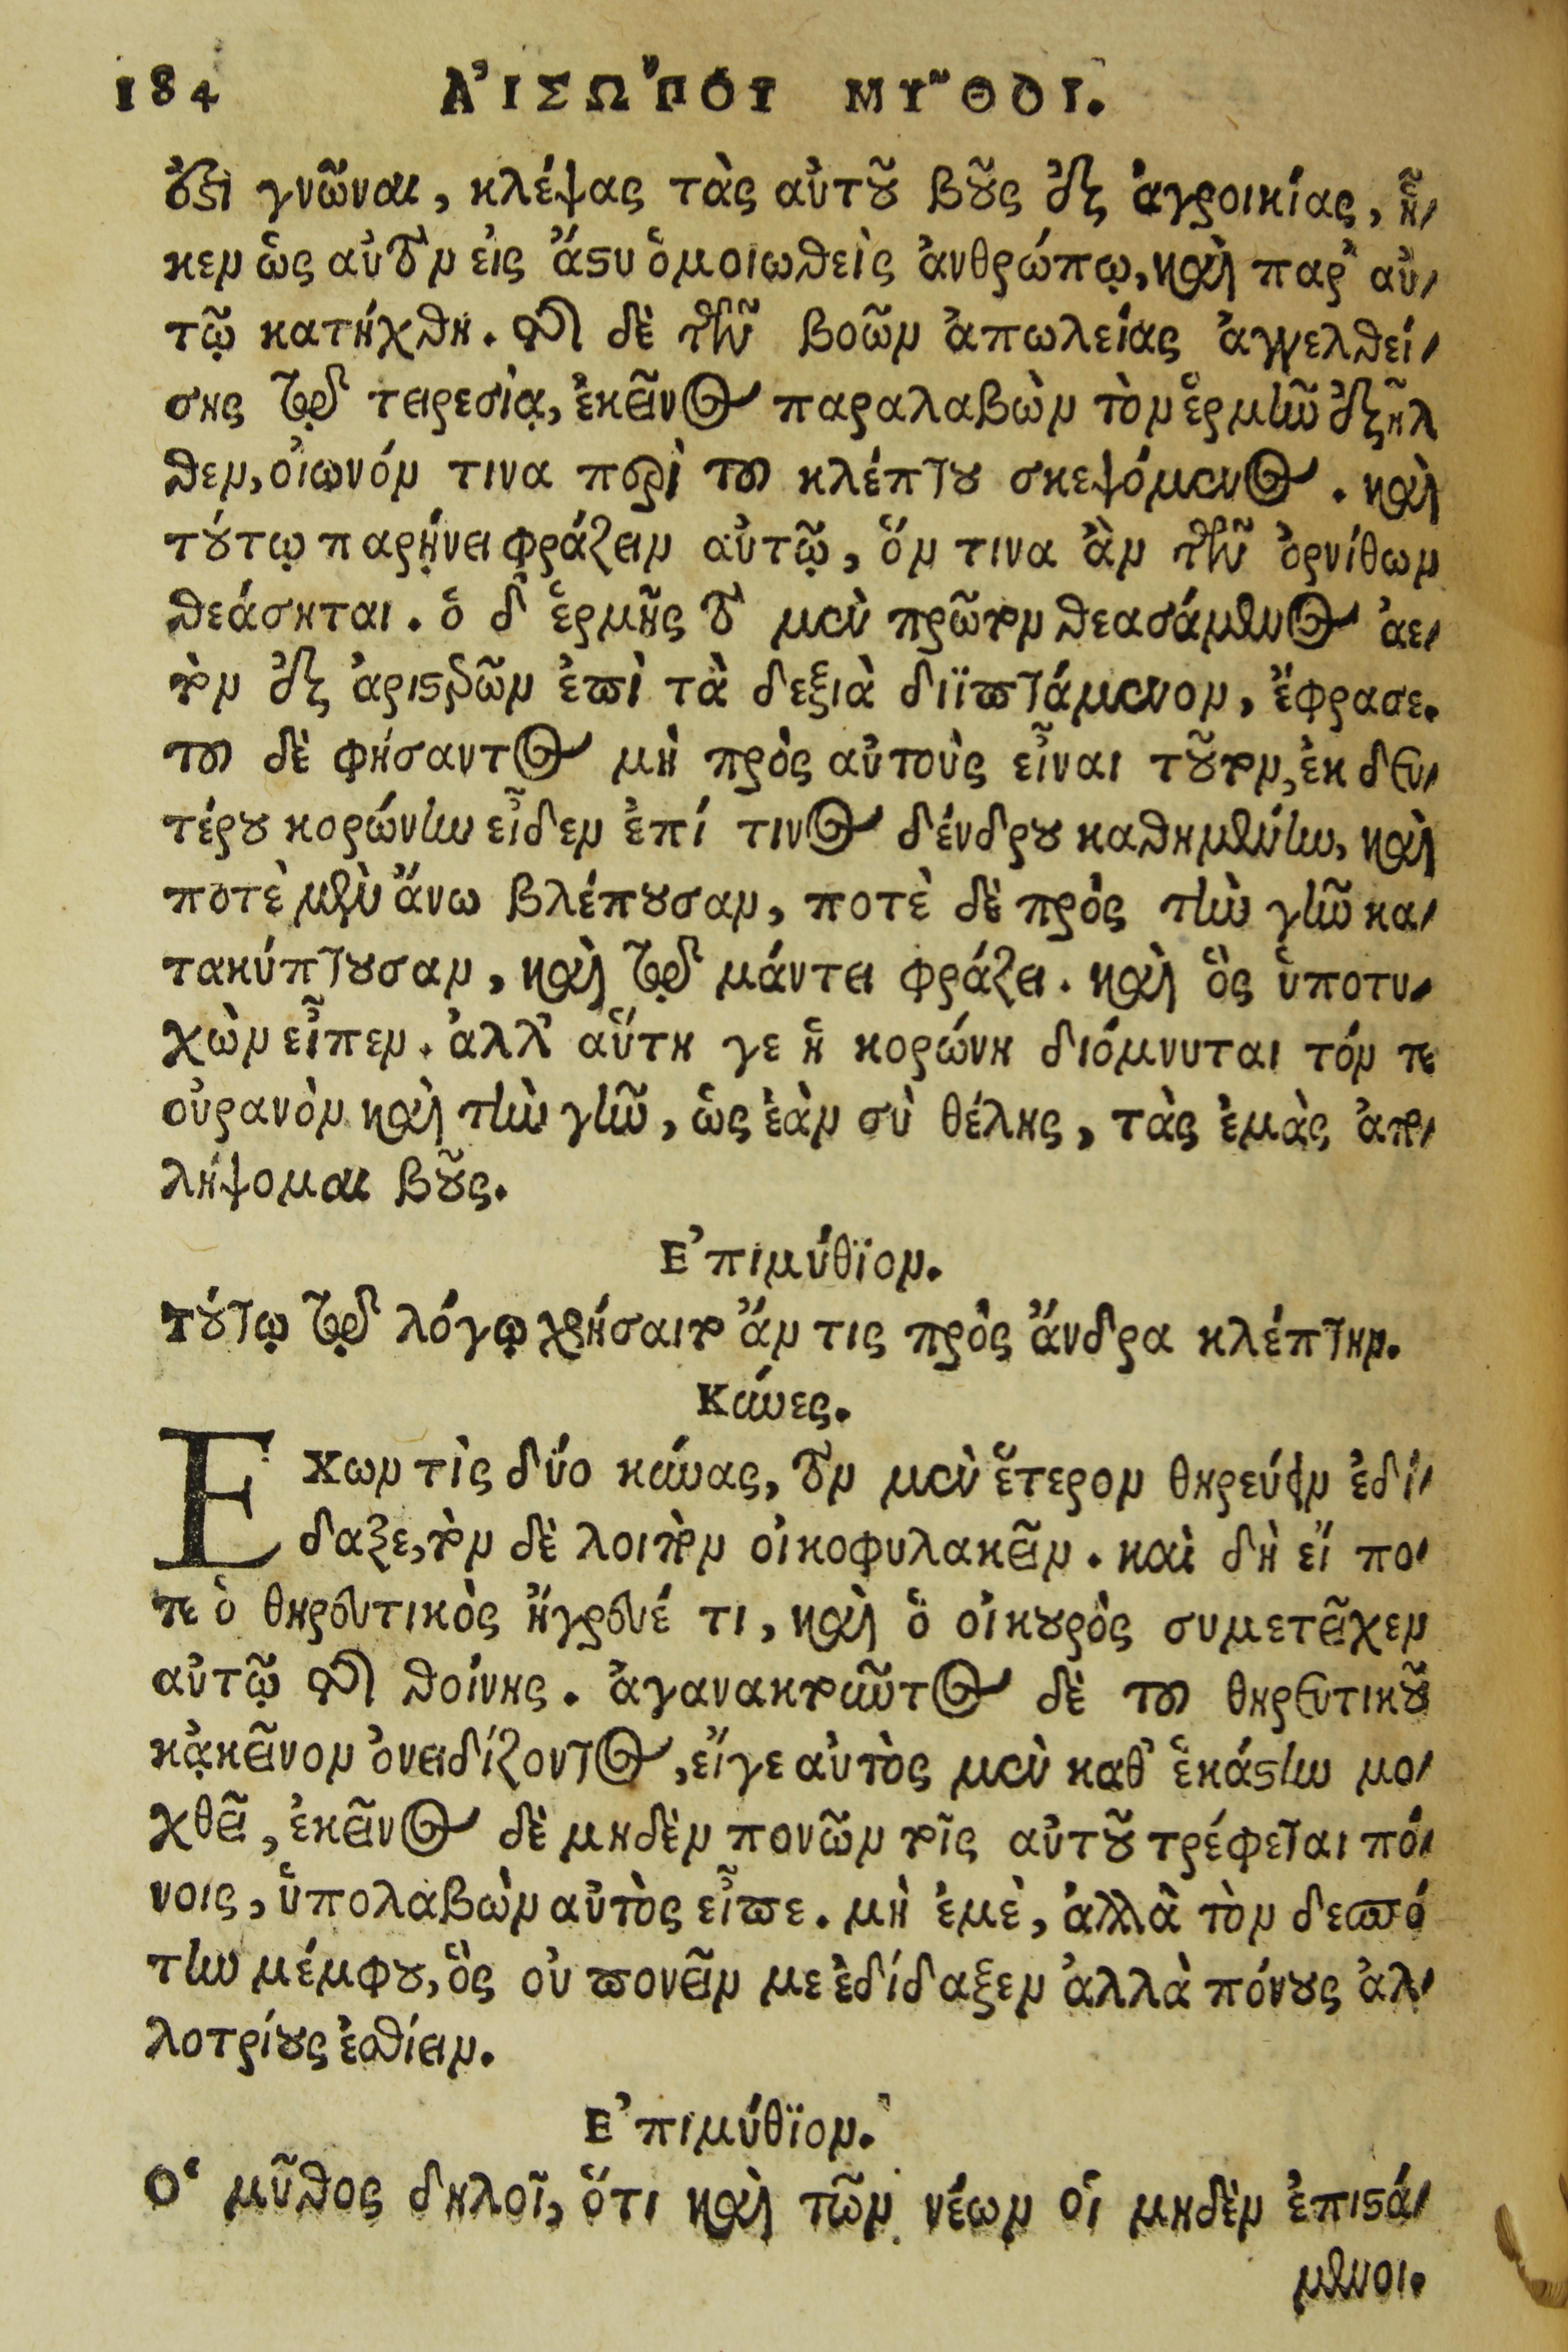 184 ΑἸΣΏΠΟΥ ΜΥ͂ΘΟΙ.
ὅτι γνῶναι, κλέψας τὰς αὐτοῦ βοῦς ἐξ ἀγροικίας, ἧ-
κεν ὡς αὐτὸν εἰς ἄστυ ὁμοιωθεὶς ἀνθρώπῳ, καὶ παρ' αὐ-
τῷ κατήχθη. τῆς δὲ τῶν βοῶν ἀπωλείας ἀγγελθεί-
σης τῷ τειρεσίᾳ, ἐκεῖνος παραλαβὼν τὸν ἑρμῆν ἐξῆλ
θεν, οἰωνόν τινα περὶ τοῦ κλέπτου σκεψόμενος. καὶ
τούτῳ παρῄνει φράζειν αὐτῷ, ὅν τινα ἂν τῶν ὀρνίθων
θεάσηται. ὁ δ' ἑρμῆς τὸ μὲν πρῶτον θεασάμενος ἀε-
τὸν ἐξ ἀριστερῶν ἐπὶ τὰ δεξιὰ διϊπτάμενον, ἔφρασε.
τοῦ δὲ φήσαντος μὴ πρὸς αὐτοὺς εἶναι τοῦτον, ἐκ δευ-
τέρου κορώνην εἶδεν ἐπί τινος δένδρου καθημένην, καὶ
ποτὲ μὲν ἄνω βλέπουσαν, ποτὲ δὲ πρὸς τὴν γῆν κα-
τακύπτουσαν, καὶ τῷ μάντει φράζει. καὶ ὃς ὑποτυ-
χὼν εἶπεν. ἀλλ' αὕτη γε ἡ κορώνη διόμνυται τόν τε
οὐρανὸν καὶ τὴν γῆν, ὡς ἐὰν σὺ θέλης, τὰς ἐμὰς ἀπο-
λήψομαι βοῦς.
Ἐπιμύθϊον.
τούτῳ τῷ λόγῳ χρήσαιτο ἄν τις πρὸς ἄνδρα κλέπτην.
Κύνες.
Εχων τὶς δύο κύνας, τὸν μὲν ἕτερον θηρεύειν ἐδί-
δαξε, τὸν δὲ λοιπὸν οἰκοφυλακεῖν. καὶ δὴ εἴ πο-
τε ὁ θηρευτικὸς ἤγρευέ τι, καὶ ὁ οἰκουρὸς συμετεῖχεν
αὐτῷ τῆς θοίνης. ἀγανακτοῦντος δὲ τοῦ θηρευτικοῦ
κᾀκεῖνον ὀνειδίζοντος, εἴγε αὐτὸς μὲν καθ' ἑκάστην μο-
χθεῖ, ἐκεῖνος δὲ μηδὲν πονῶν τοῖς αὐτοῦ τρέφεται πό-
νοις, ὑπολαβὼν αὐτὸς εἶπε. μὴ ἐμὲ, ἀλλὰ τὸν δεσπό
την μέμφου, ὃς οὐ πονεῖν με ἐδίδαξεν ἀλλὰ πόνους ἀλ-
λοτρίους ἐσθίειν.
Ἐπιμύθϊον.
Ὁ μῦθος δηλοῖ, ὅτι καὶ τῶν νέων οἱ μηδὲν ἐπιστά-
μενοι.